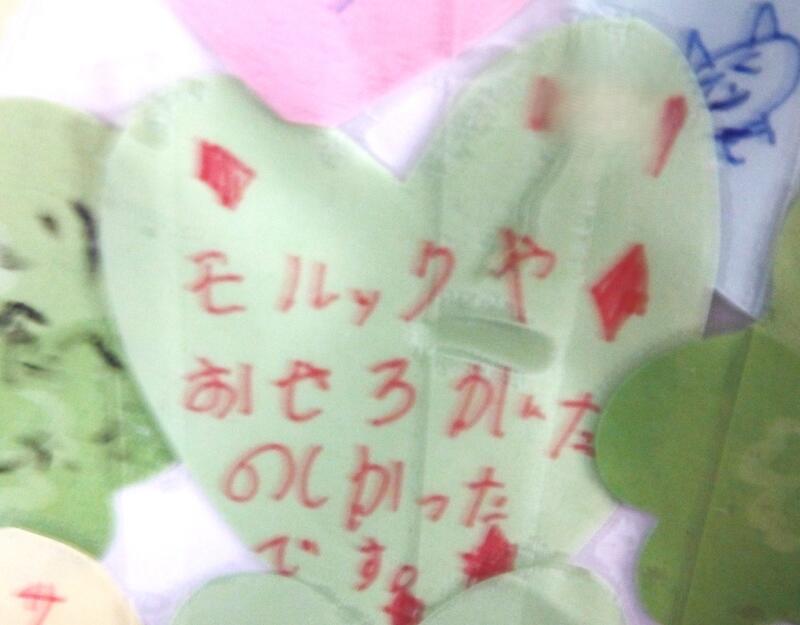 モルックや
おせろがた
のしかった
です。
サ